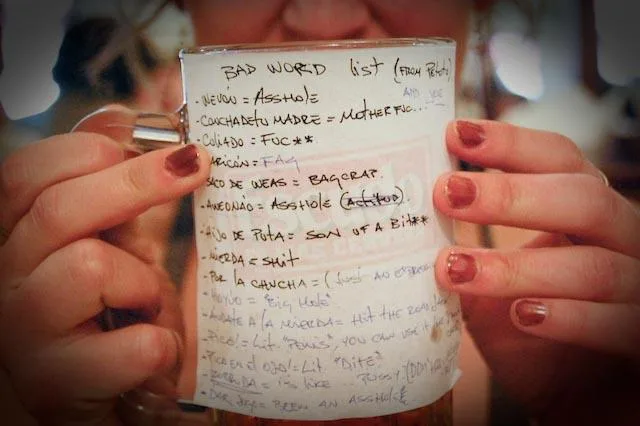 BAD WORLD list (FROM Pto
AND JOE
- WEVÓN = ASSHOLE
- CONCHADETU MADRE = MOTHER FUC...
- CULIADO = FUC**
ARICÓN = FAG
SACO DE WEAS = BAGCRAP.
- AWEONAO = ASSHOLE (ACTITUD).
- HIJO DE PUTA = SON OF A Bit**
- MIERDA = SHIT
- POR LA CHUCHA = (JUST AN EXPRES
- HOYUO = "BIG HOLE"
- ANDATE A LA MIERDA = HIT THE ROAD
- PICO! = Lit. "PENIS", YOU CAN USE IT
- PICO EN EL OJO! = Lit. "DITE".
= it's LIKE ... PUSSY (DON'T
- DAR JUGO = BEEN AN ASSHOLE